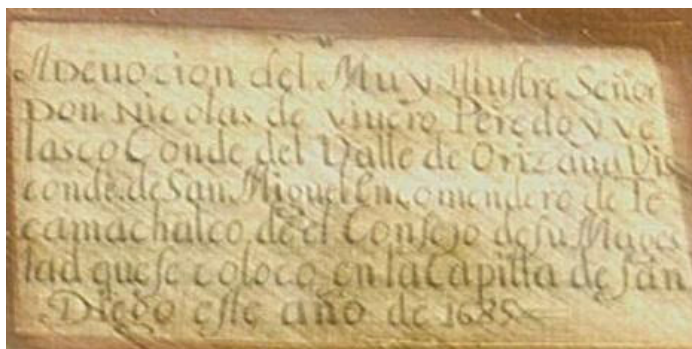 A Deuocion del Muy Illustre Señor
Don Nicolas de Viuero Peredo y Ve
lasco Conde del Valle de Orizaua Vis
conde de San Miguel Encomendero de Te
camachalco de el Consejo de su Mages
tad que se coloco en la Capilla de San
Diego este año de 1685